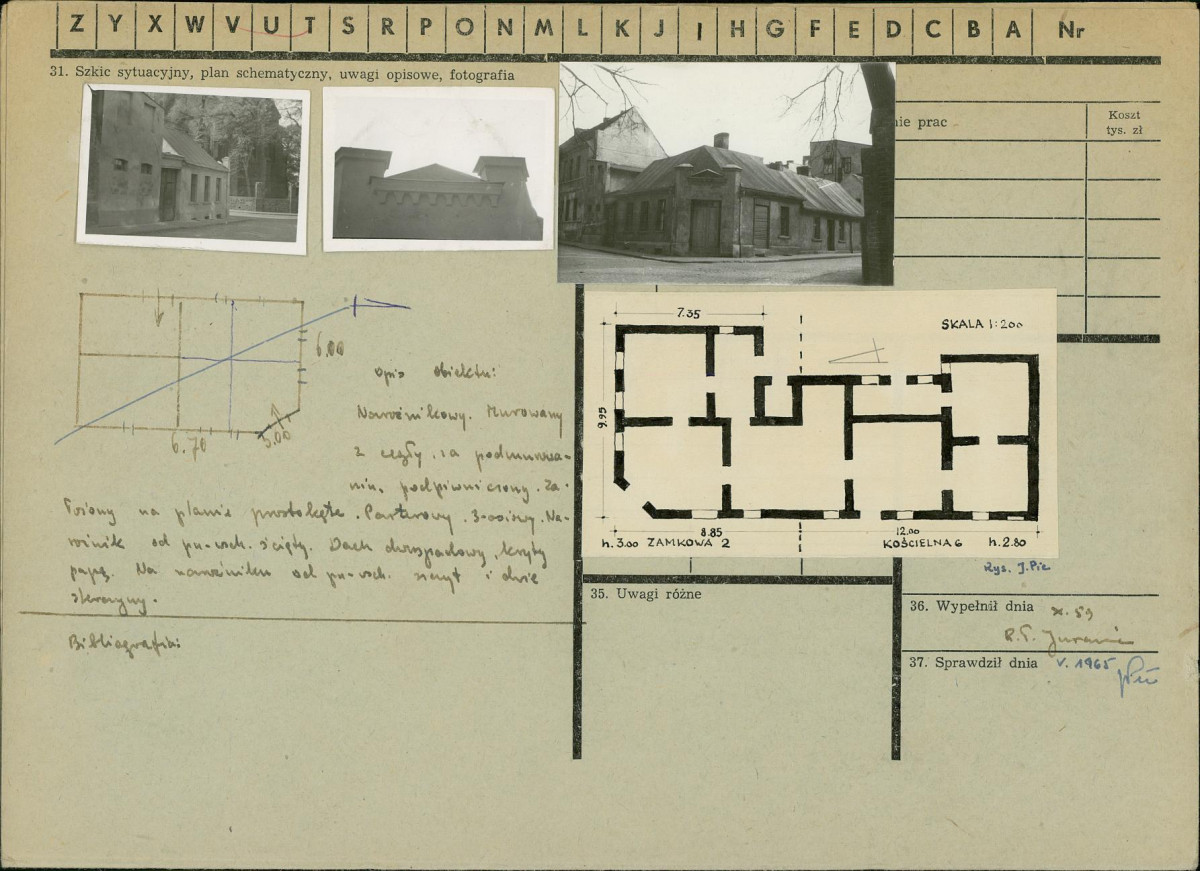 Z Y X W V U T S R P O N M L K J I H G F E D C B A Nr
31. Szkic sytuacyjny, plan schematyczny, uwagi opisowe, fotografia
nie prac
Koszt
tys. zł
7.35
SKALA 1:200
9.95
8.85
12.00
h. 3.00 ZAMKOWA 2
KOŚCIELNA 6 h. 2.80
Rys. J. Pic
6.00
6.70
5.00
Opis obiektu:
Narożnikowy. Murowany
z cegły, na podmurowa-
niu, podpiwniczony. Za-
łożony na planie prostokąta. Parterowy. 3-osiowy. Na-
rożnik od pn-wsch. ścięty. Dach dwuspadowy, kryty
papą. Na narożniku od pn-wsch. szczyt i dwie
sterczyny.
Bibliografia:
35. Uwagi różne
36. Wypełnił dnia X. 59
37. Sprawdził dnia V. 1965